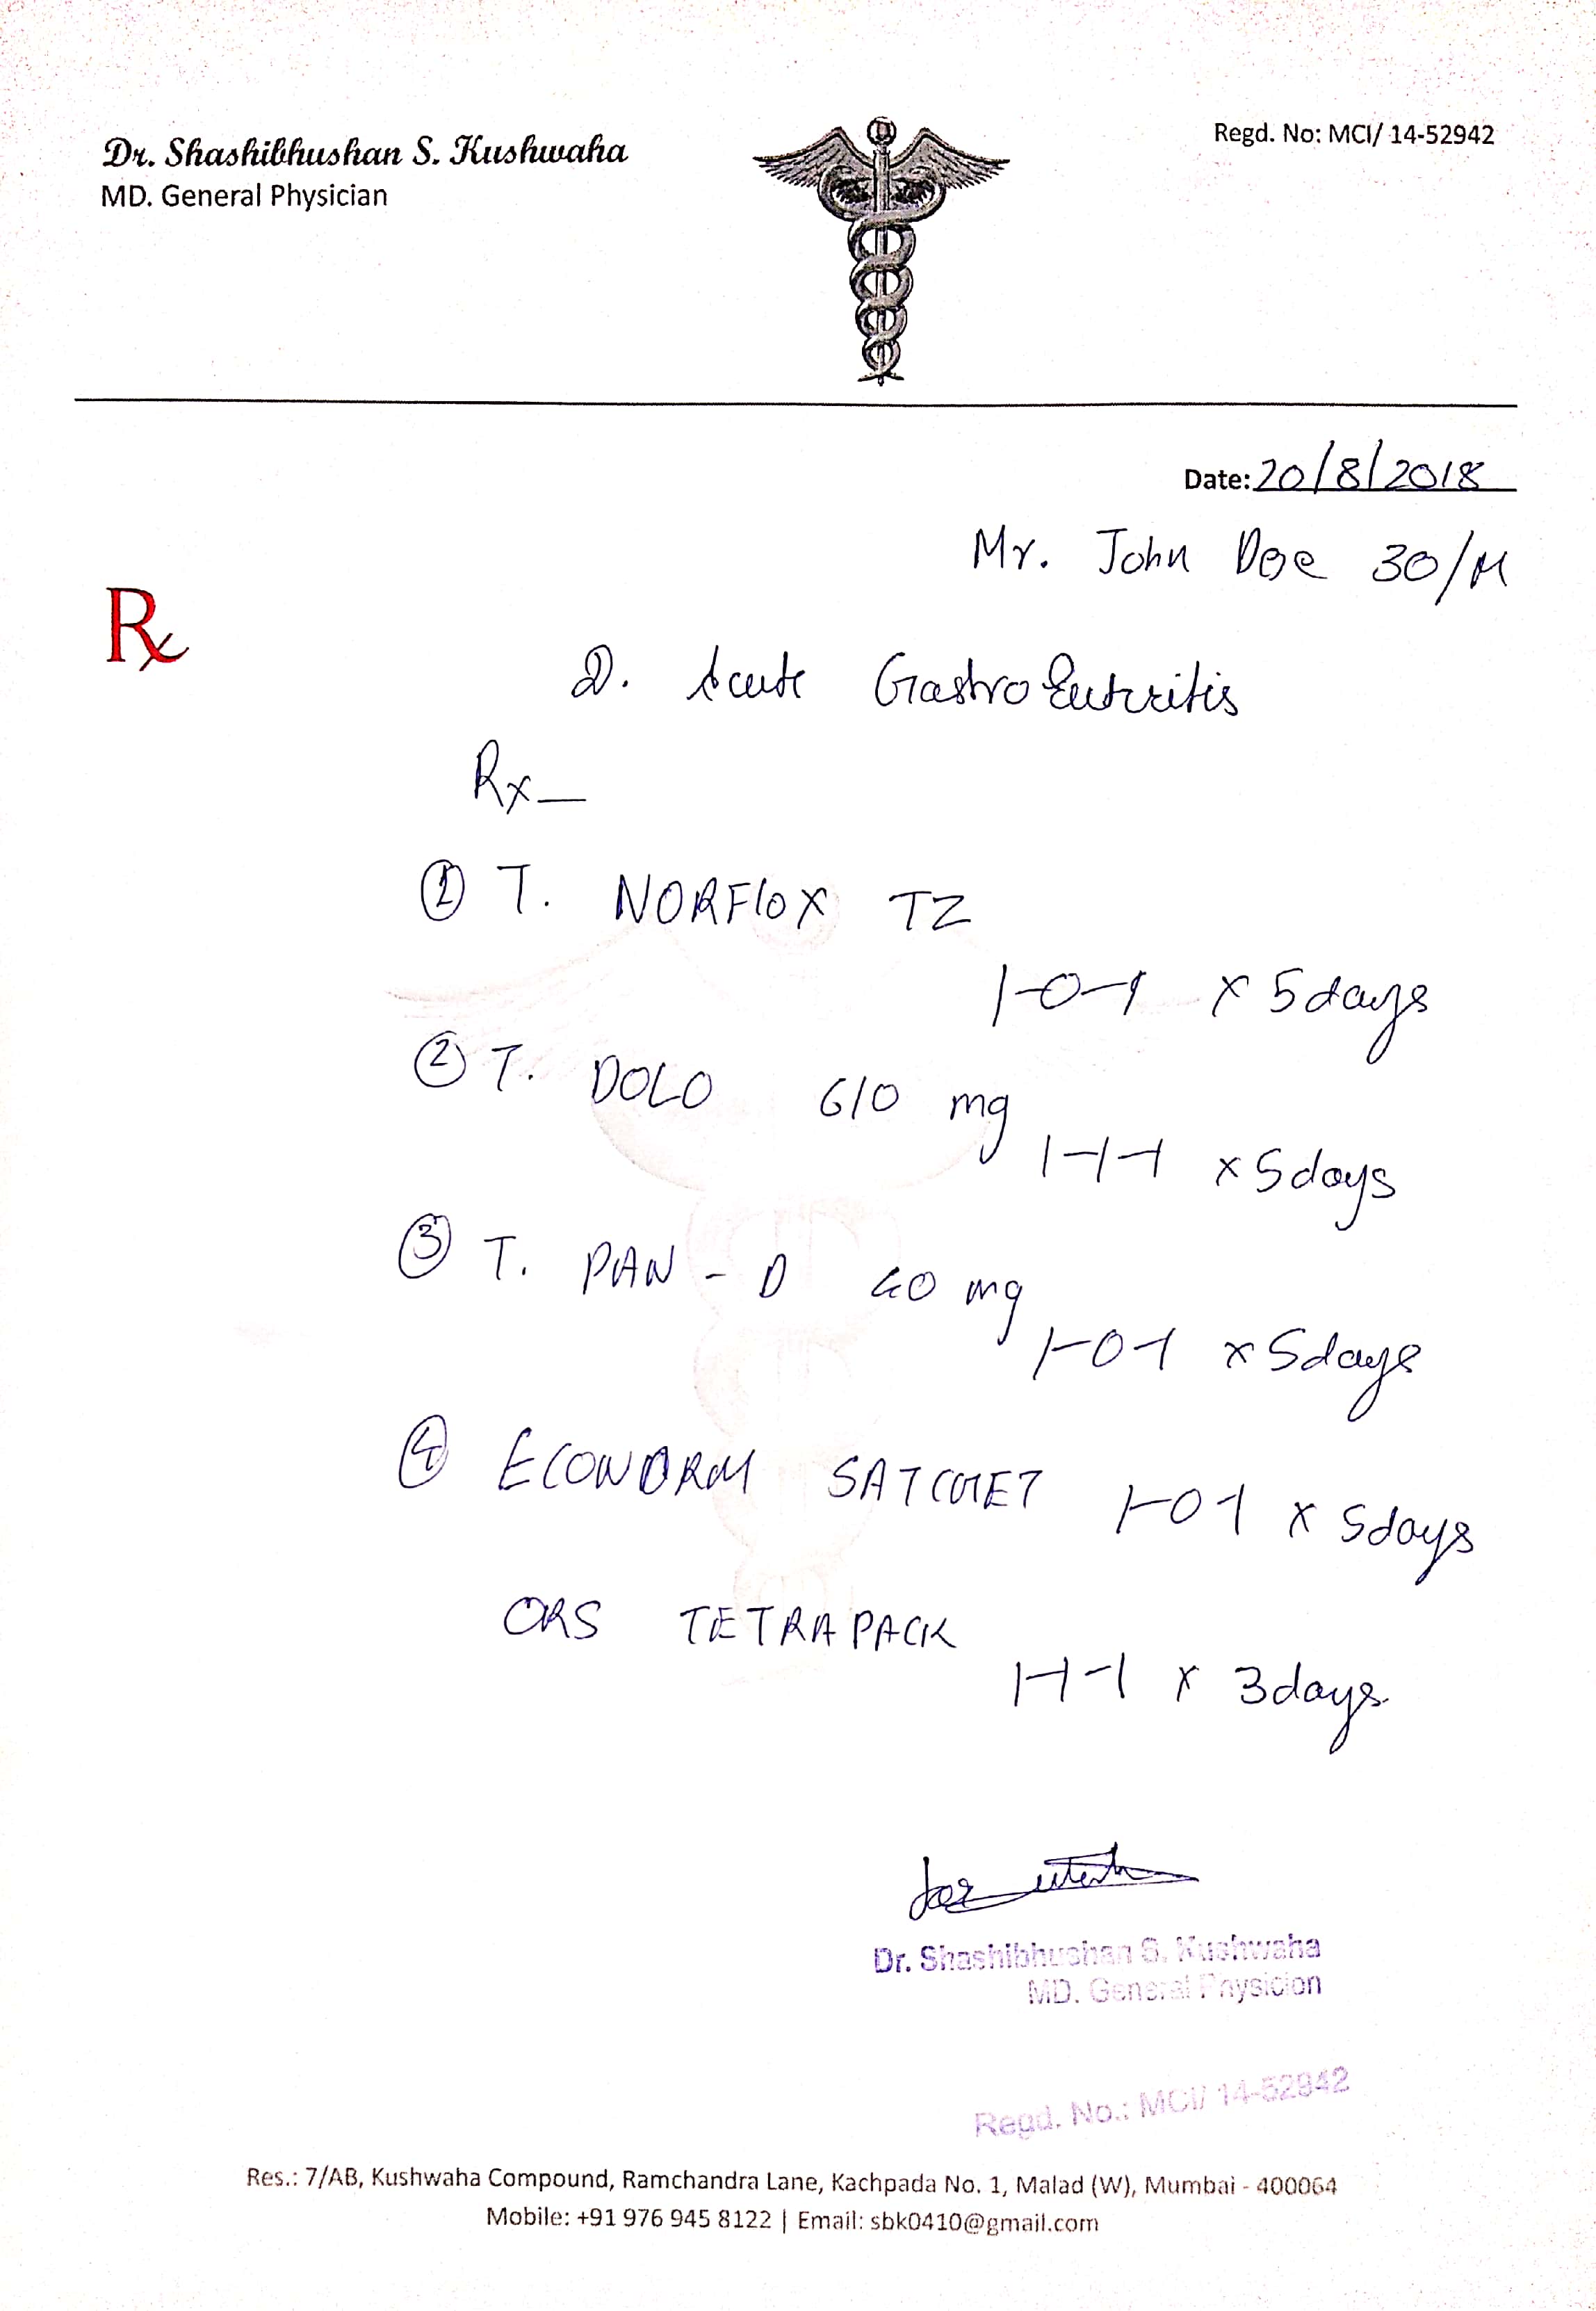 Dr. Shashibhushan S. Kushwaha
MD. General Physician
Regd. No: MCI/ 14-52942
Date: 20/8/2018
Mr. John Doe 30/M
Rx
D. Acute Gastro Enteritis
Rx—
① T. NORFLOX TZ
1-0-1 x 5 days
② T. DOLO 610 mg
1-1-1 x 5 days
③ T. PAN - D 40 mg
1-0-1 x 5 days
④ ECONORM SATCHET 1-0-1 x 5 days
ORS TETRAPACK
1-1-1 x 3 days.
Dr. Shashibhushan S. Kushwaha
MD. General Physicion
Regd. No.: MCI/ 14-52942
Res.: 7/AB, Kushwaha Compound, Ramchandra Lane, Kachpada No. 1, Malad (W), Mumbai - 400064
Mobile: +91 976 945 8122 | Email: sbk0410@gmail.com